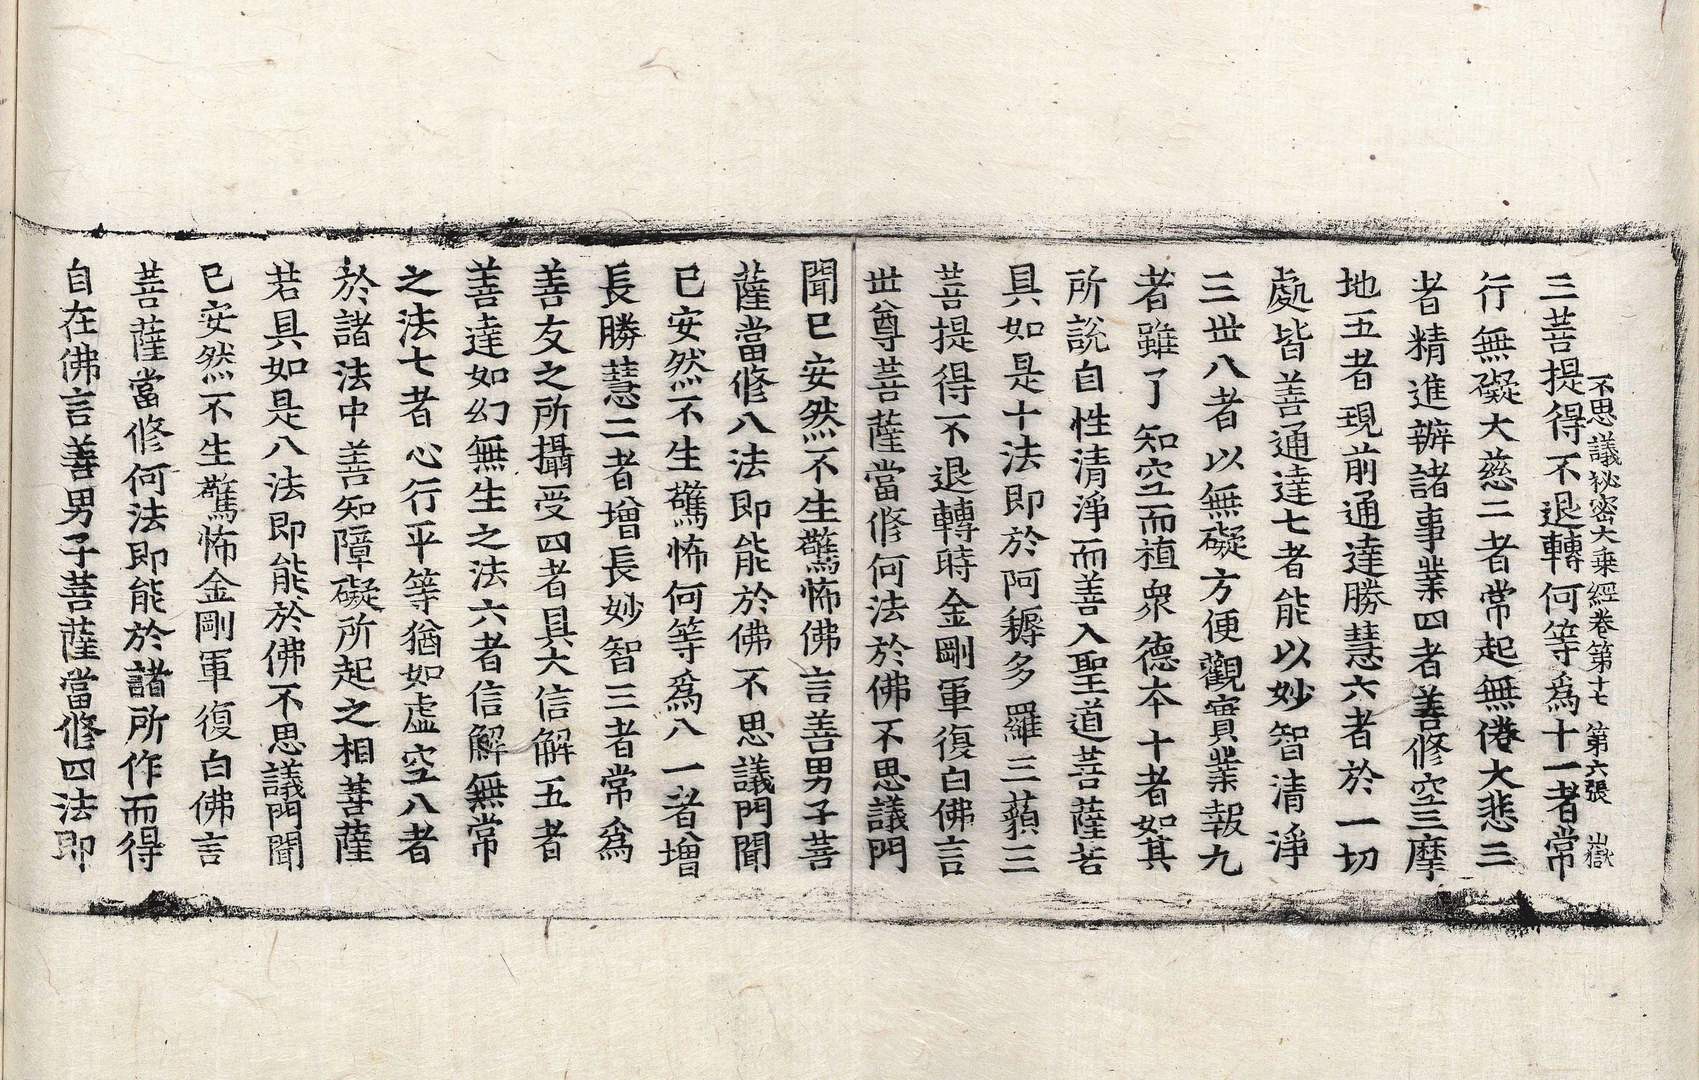 不思議秘密大乘經卷第十七 第六張 㺉
三菩提得不退轉何等為十一者常
行無礙大慈二者常起無倦大悲三
者精進辦諸事業四者善修空三摩
地五者現前通達勝慧六者於一切
處皆善通達七者能以妙智清淨
三世八者以無礙方便觀實業報九
者雖了知空而植衆德本十者如其
所說自性清淨而善入聖道菩薩若
具如是十法即於阿耨多羅三藐三
菩提得不退轉時金剛軍復白佛言
世尊菩薩當修何法於佛不思議門
聞已安然不生驚怖佛言善男子菩
薩當修八法即能於佛不思議門聞
已安然不生驚怖何等爲八一者增
長勝慧二者增長妙智三者常爲
善友之所攝受四者具大信解五者
善達如幻無生之法六者信解無常
之法七者心行平等猶如虛空八者
於諸法中善知障礙所起之相菩薩
若具如是八法即能於佛不思議門聞
已安然不生驚怖金剛軍復白佛言
菩薩當修何法即能於諸所作而得
自在佛言善男子菩薩當修四法即